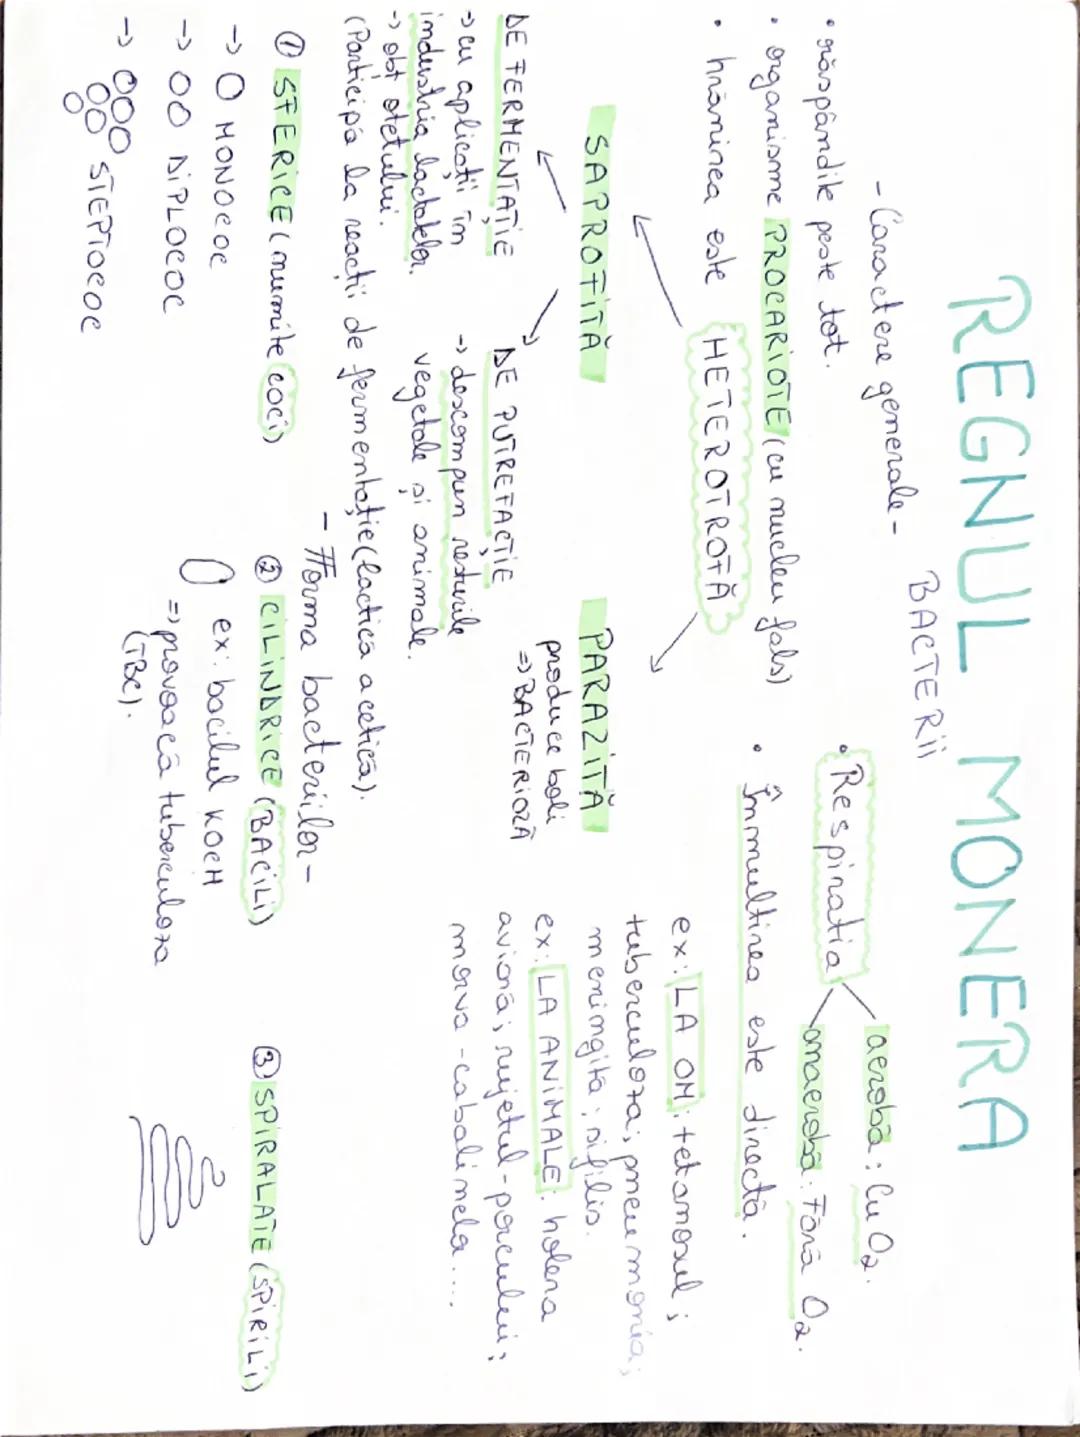 REGNUL MONERA
BACTERII
- Caractere generale -
• răspândite peste tot.
• organisme PROCARIOTE (cu nucleu fals)
• hrănirea este HETEROTROFĂ
SAPROFITĂ
PARAZITĂ
produce boli
=> BACTERIOZĂ
DE FERMENTAȚIE
-> cu aplicații în
industria lactatelor.
-> obț oțetului.
(Participă la reacții de fermentație (lactică acetică).
DE PUTREFACȚIE
-> descompun resturile
vegetale și animale.
• Respirația
aerobă: Cu O2.
anaerobă: Fără O2.
• Înmulțirea este directă.
ex: LA OM: tetanosul;
tuberculoza; pneumonia;
meningita; sifilis.
ex: LA ANIMALE: holera
aviară; rujetul-porcului;
morva - cabalinela....
- Forma bacteriilor -
① SFERICE (numite coci)
-> MONOCOC
-> DIPLOCOC
-> STEPTOCOC
② CILINDRICE (BACILI)
ex: bacilul KOCH
=> provoacă tuberculoza
(TBC).
③ SPIRALATE (SPIRILI)